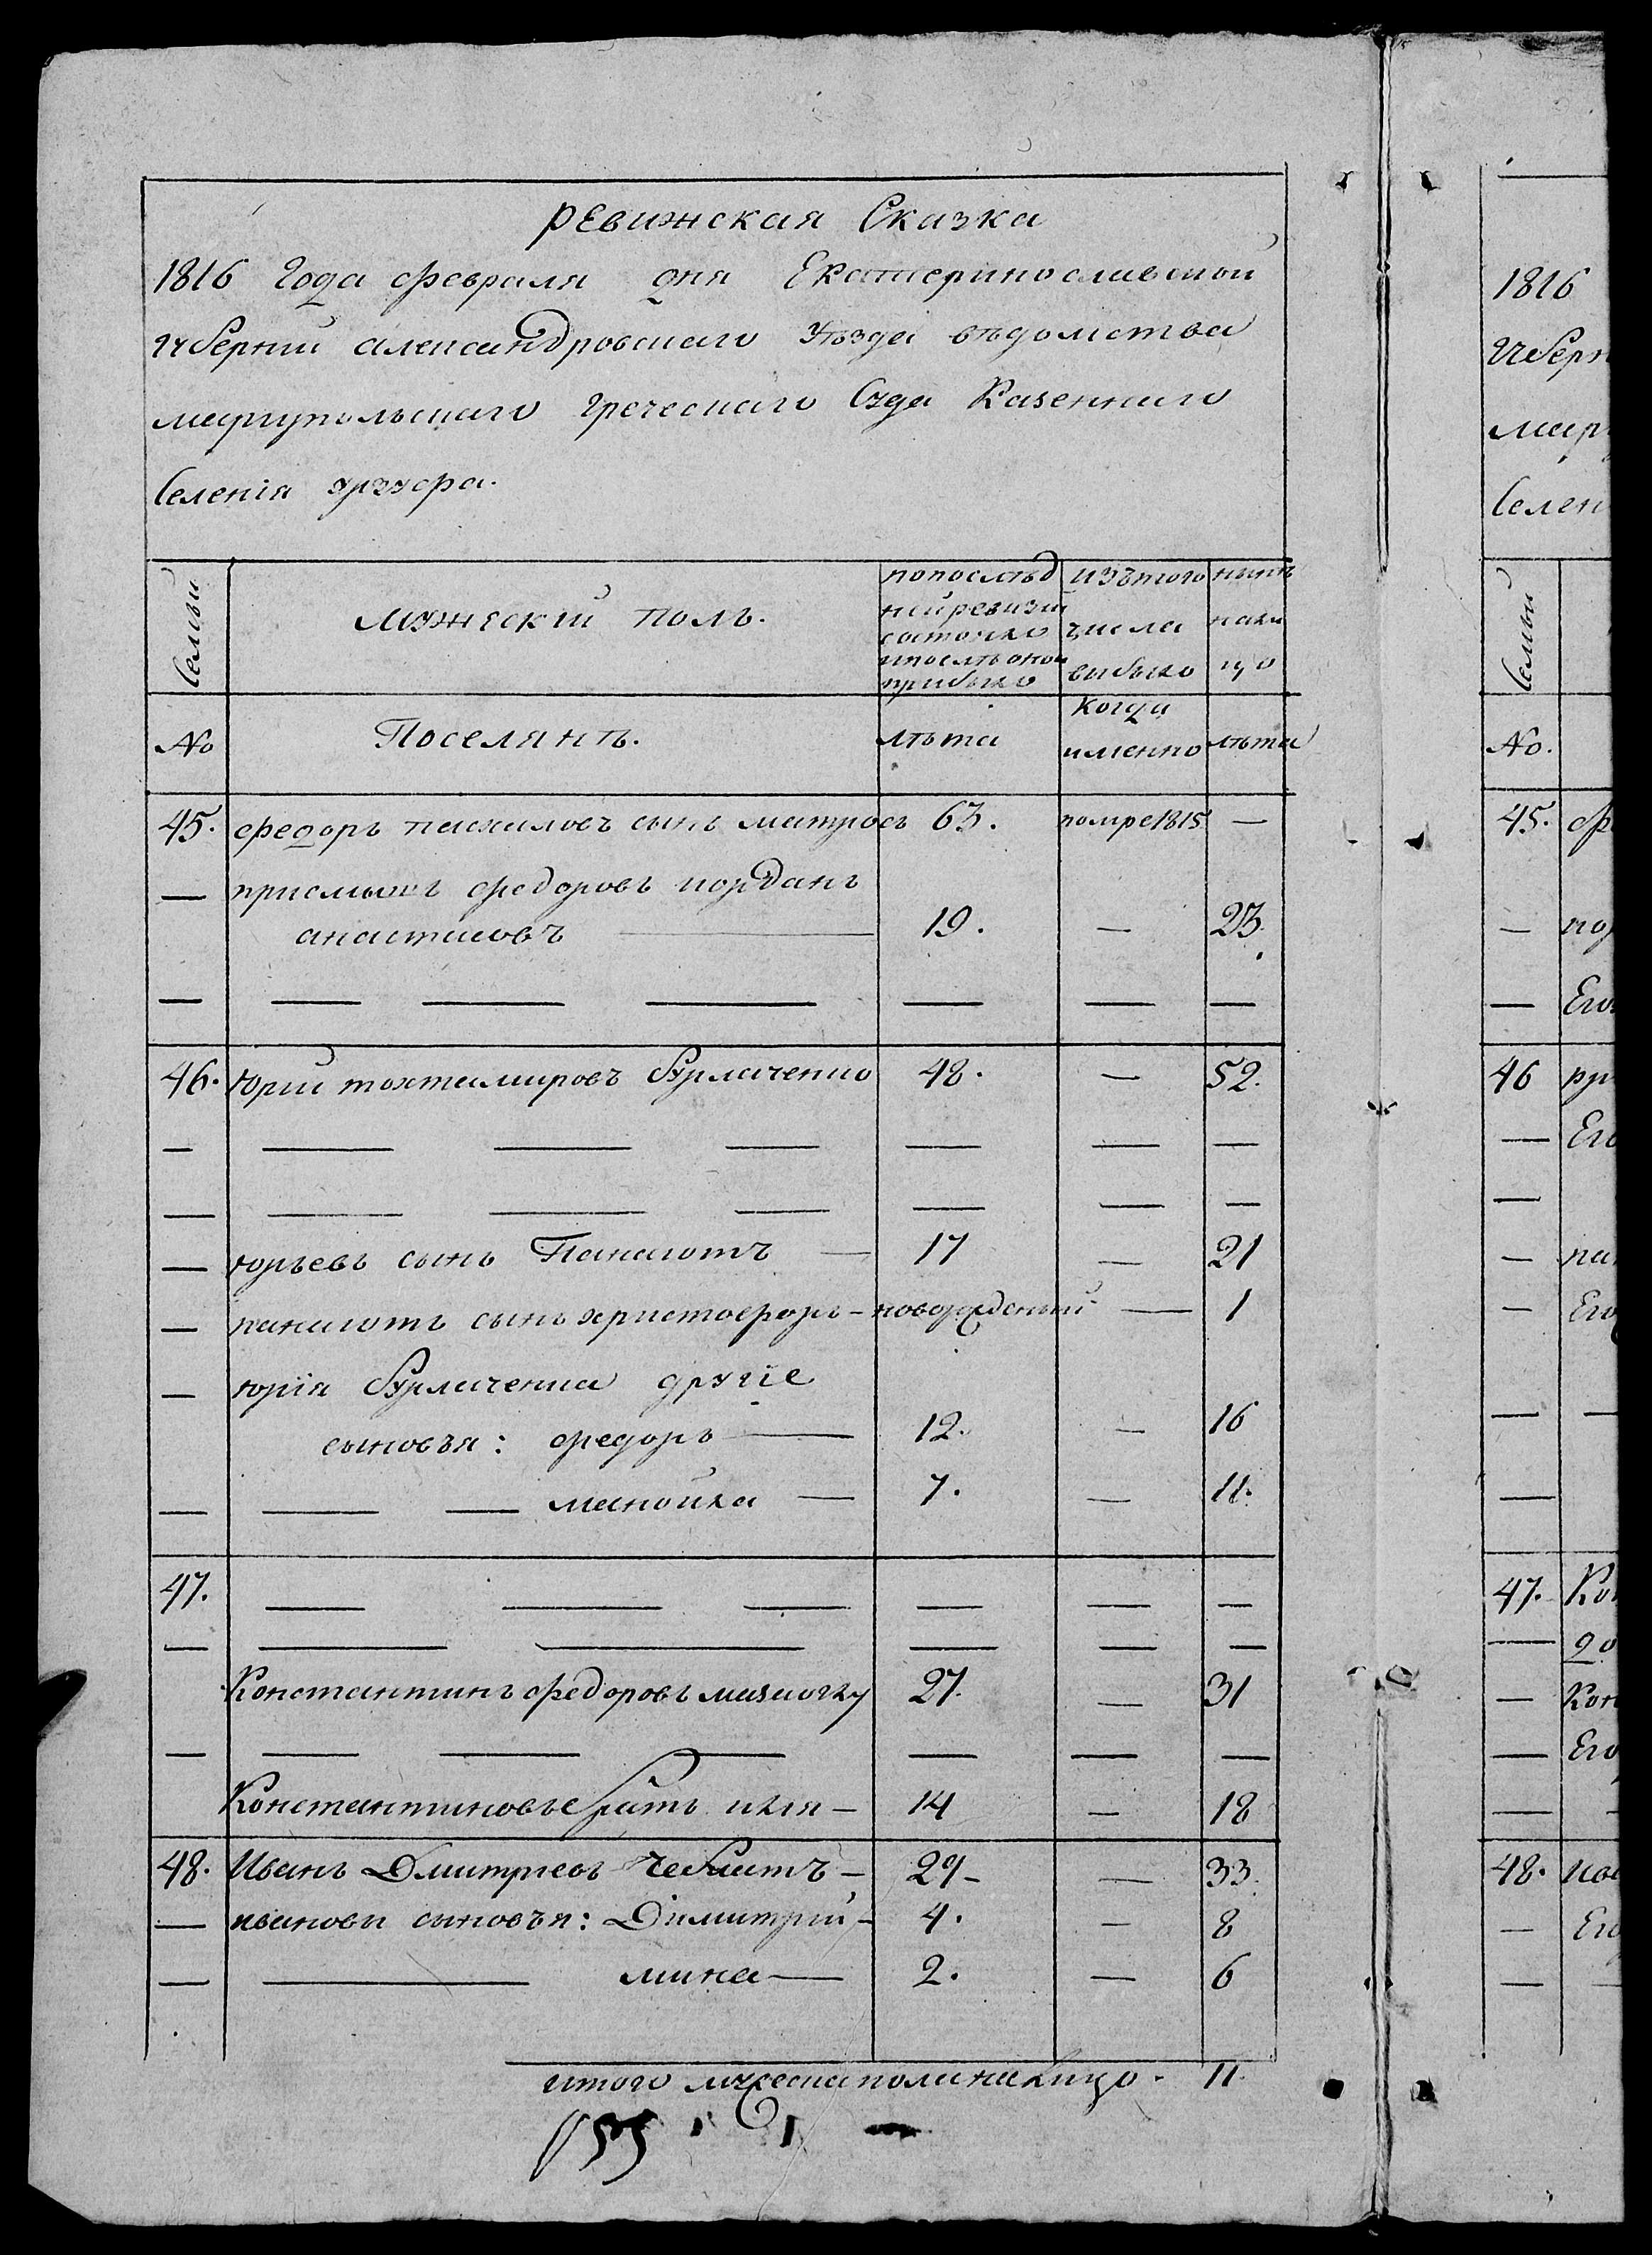 РЕвижская Сказка
1816 Года февраля дня Екатеринославской
губернии александровскаго Уѣзда вѣдомства
мариупольскаго греческаго Суда Казеннаго
Селенія урзуфа.
Семьи
мужескій полъ.
попослѣд
ней ревизіи
состояло
ипослѣ оной
прибыло
изътого
числа
выбыло
нынѣ
нали
цо
№
Поселянъ.
лѣта
когда
именно
лѣта
45. федоръ сынъ матросъ 63. помре 1815 —
— приемышъ федоровъ иорданъ
анастасовъ — 19. — 23.
— — — — — — —
46. Юрий тохтамировъ бурлаченко 48. — 52.
— — — — — — —
— — — — — — —
— юрьевъ сынъ Панаиотъ — 17 — 21
— панаиотъ сынъ христофоръ - новорожденый — 1
— юрія бурлаченка другіе
сыновья: федоръ — 12. — 16
— — — манойла — 7. — 11.
47. — — — — — —
— — — — — —
Константинъ федоровъ 27. — 31
— — — — — — —
Константиновъ братъ илия — 14 — 18
48. Иванъ Дмитриевъ — 29 — — 33.
— ивановы сыновья: Димитрий — 4. — 8
— — мина — 2. — 6
итого мужеска пола налицо. 11.
1816
губерн
мари
Селен
Семьи
№.
45. фе
—
— Его
46
— Его
—
—
— Его
— —
—
47. Кон
—
— Кон
— Его
— —
48. ива
— Его
— —